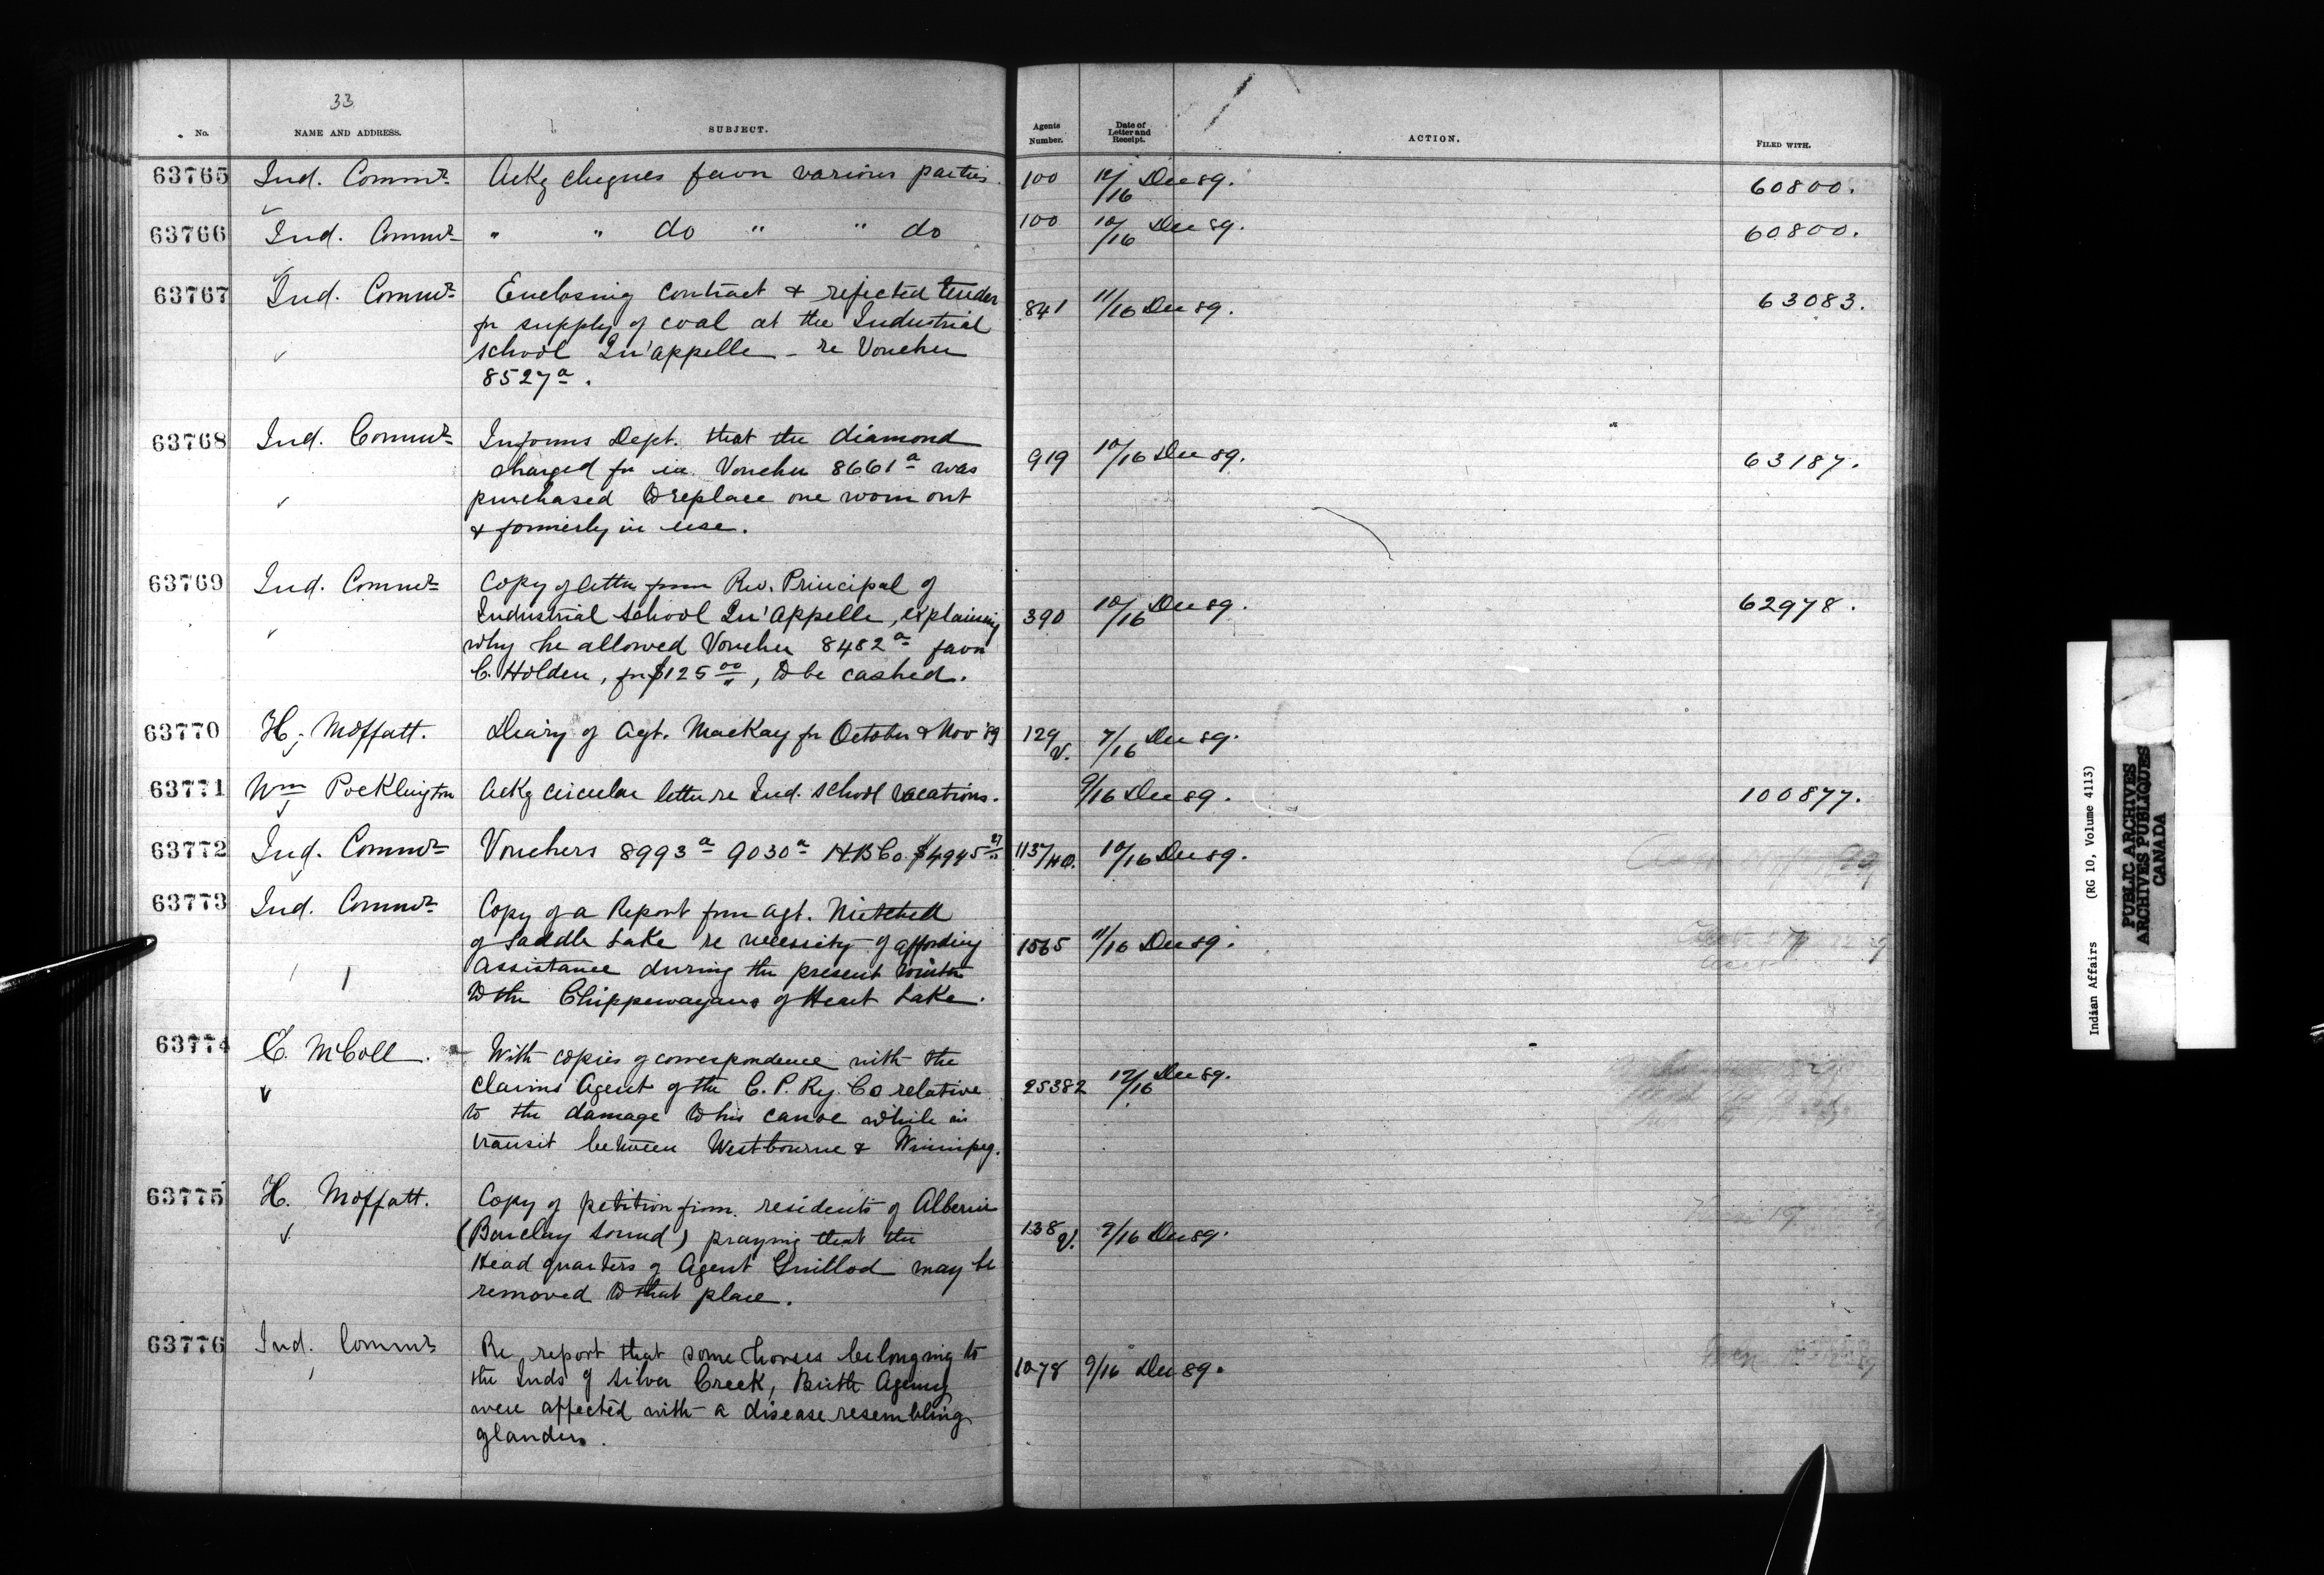 33
No.
NAME AND ADDRESS.
SUBJECT.
Agents Number.
Date of Letter and Receipt.
ACTION.
FILED WITH.
63765 Ind. Commr. Ackg cheques favor various parties. 100 12/16 Dec 89. 60800.
63766 Ind. Commr. " " do " " do 100 10/16 Dec 89. 60800.
63767 Ind. Commr. Enclosing contract & rejected tender 841 11/16 Dec 89. 63083.
for supply of coal at the Industrial
school Qu'appelle - re Voucher
8527a.
63768 Ind. Commr. Informs Dept. that the diamond
charged for in Voucher 8661a was 919 10/16 Dec 89. 63187.
purchased to replace one worn out
& formerly in use.
63769 Ind. Commr. Copy of letter from Rev. Principal of
Industrial School Qu'Appelle, explaining 390 10/16 Dec 89. 62978.
why he allowed Voucher 8482a favor
C. Holden, for $125 00, to be cashed.
63770 H. Moffatt. Diary of Agt. MacKay for October & Nov '89 129 V. 7/16 Dec 89.
63771 Wm Pocklington Ackg circular letter re Ind. school vacations. 9/16 Dec 89. 100877.
63772 Ind. Commr. Vouchers 8993a 9030a H.B.Co. $4945 27 1137/HO. 10/16 Dec 89.
63773 Ind. Commr. Copy of a Report from Agt. Mitchell
of Saddle Lake re necessity of affording 1565 11/16 Dec 89.
assistance during the present winter
to the Chippewayans of Heart Lake.
63774 E. McColl. With copies of correspondence with the
Claims Agent of the C. P. Ry. Co relative 25382 12/16 Dec 89.
to the damage to his canoe while in
transit between Westbourne & Winnipeg.
63775 H. Moffatt. Copy of petition from residents of Alberni
(Barclay Sound) praying that the 138 V. 9/16 Dec 89.
Head quarters of Agent Guillod may be
removed to that place.
63776 Ind. Commr Re report that some horses belonging to
the Inds of Silver Creek, Birtle Agency 1078 9/16 Dec 89.
were affected with a disease resembling
glanders.
Indian Affairs (RG 10, Volume 4113)
PUBLIC ARCHIVES
ARCHIVES PUBLIQUES
CANADA